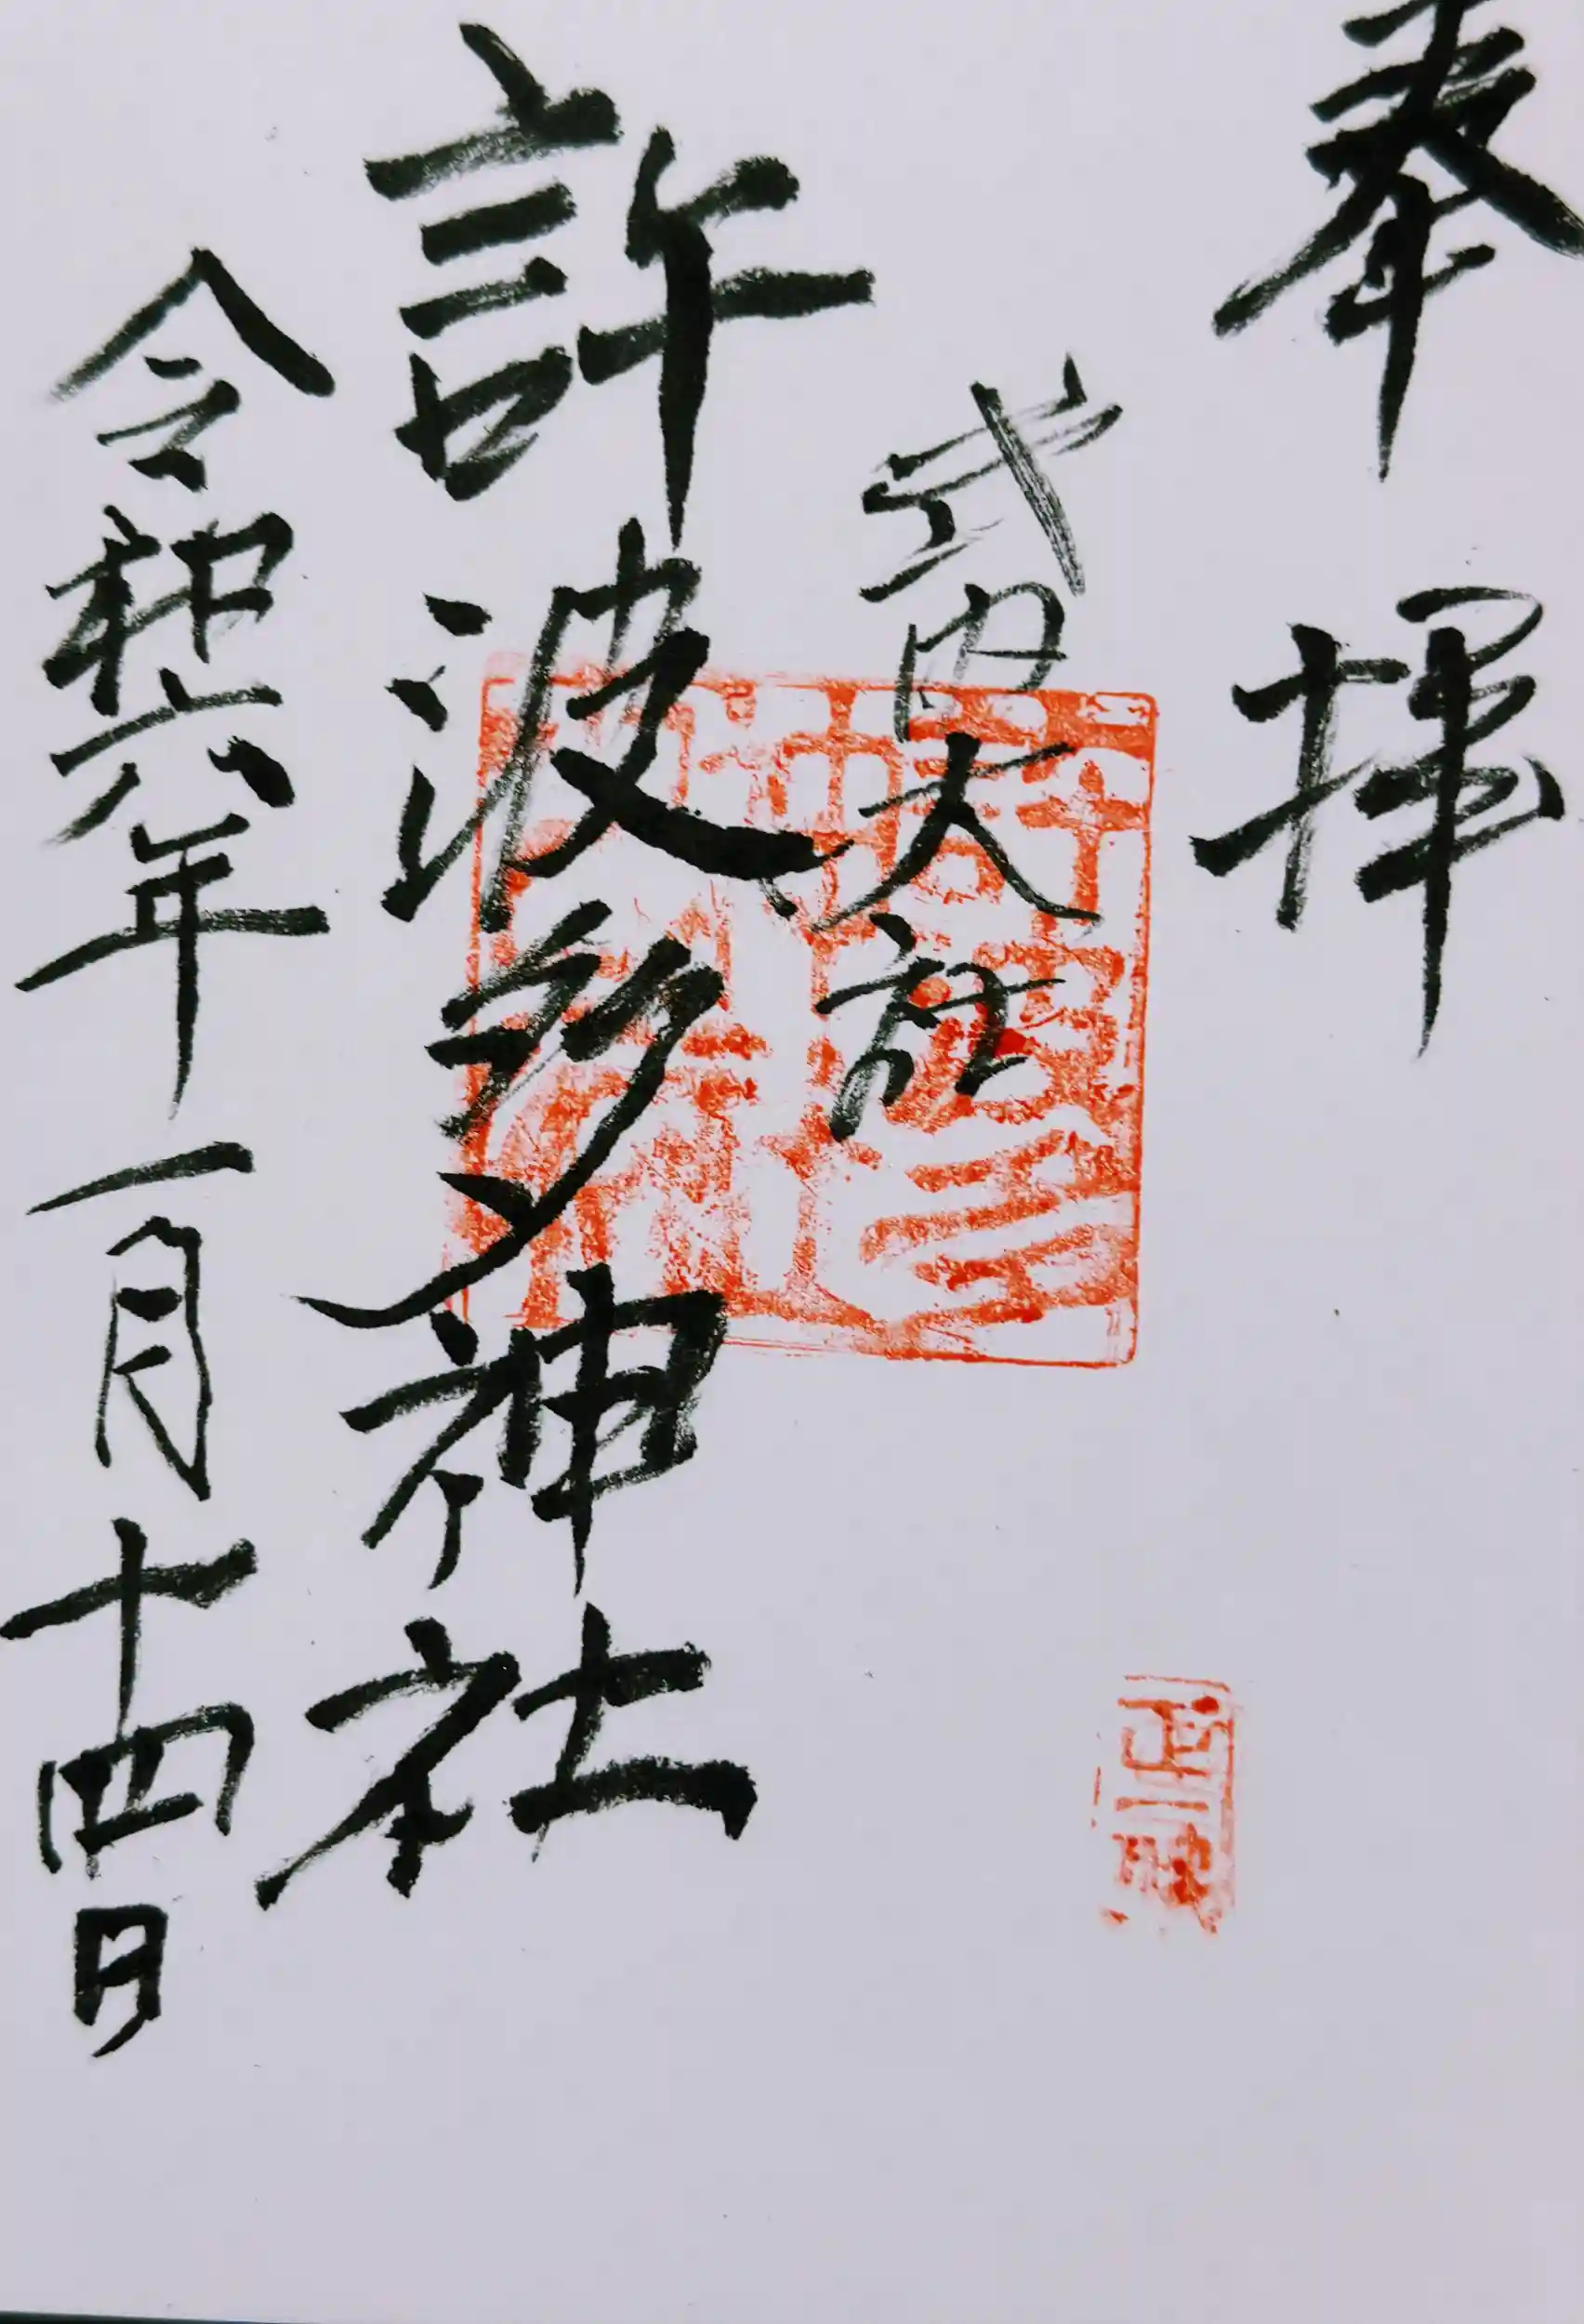 奉拝
式内大社
許波多神社
令和六年一月十四日